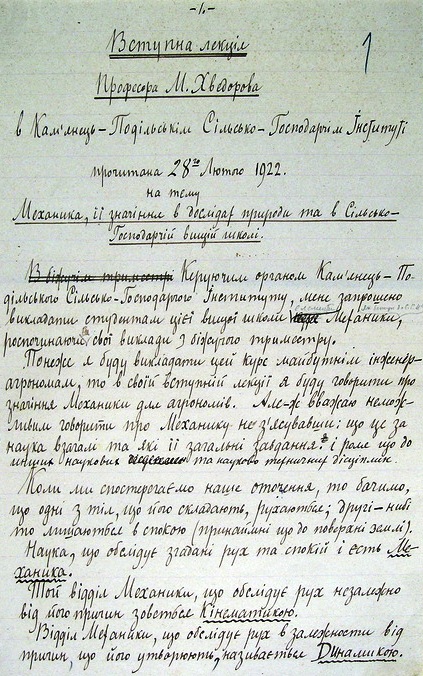 -1-
1
Вступна лекція
Професора М. Хведорова
в Кам'янець-Подільскім Сільсько-Господарчім Інституті
прочитана 28го Лютого 1922.
на тему
Механика, її значіння в дослідах природи та в Сільсько-
Господарчій вищій школі.
В біжучім триместрі Керуючим органом Кам'янець-По-
дільського Сільсько-Господарчого Інституту, мене запрошено
викладати студентам цієї вищої школи Механики,
розпочинаючи свої виклади з біжучого триместру.
Понеже я буду викладати цей курс майбутнім інженер-
агрономам, то в своїй вступній лекції я буду говорити про
значіння Механики для агрономів. Але-ж вважаю немож-
ливим говорити про Механику не з'ясувавши: що це за
наука взагалі та які її загальні завдання і роля що до
инших наукових та науково технічних дісціплін
Коли ми спостерегаємо наше оточення, то бачимо,
що одні з тіл, що його складають, рухаються; другі-ниби
то лишаються в спокою (принаймні що до поверхні землі).
Наука, що обслідує згадані рух та спокій і єсть Ме-
ханика.
Той відділ Механики, що обслідує рух незалежно
від його причин зоветься Кінематикою.
Відділ Механики, що обслідує рух в залежности від
причин, що його утворюють, називається Динамикою.